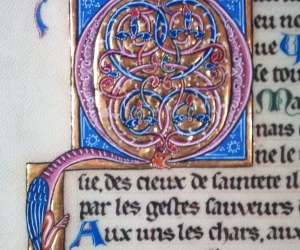 eu ne
que
se tou
nais
ne le
sie, des cieux de sainteté il
par les gestes sauveurs
Aux uns les chars, aux